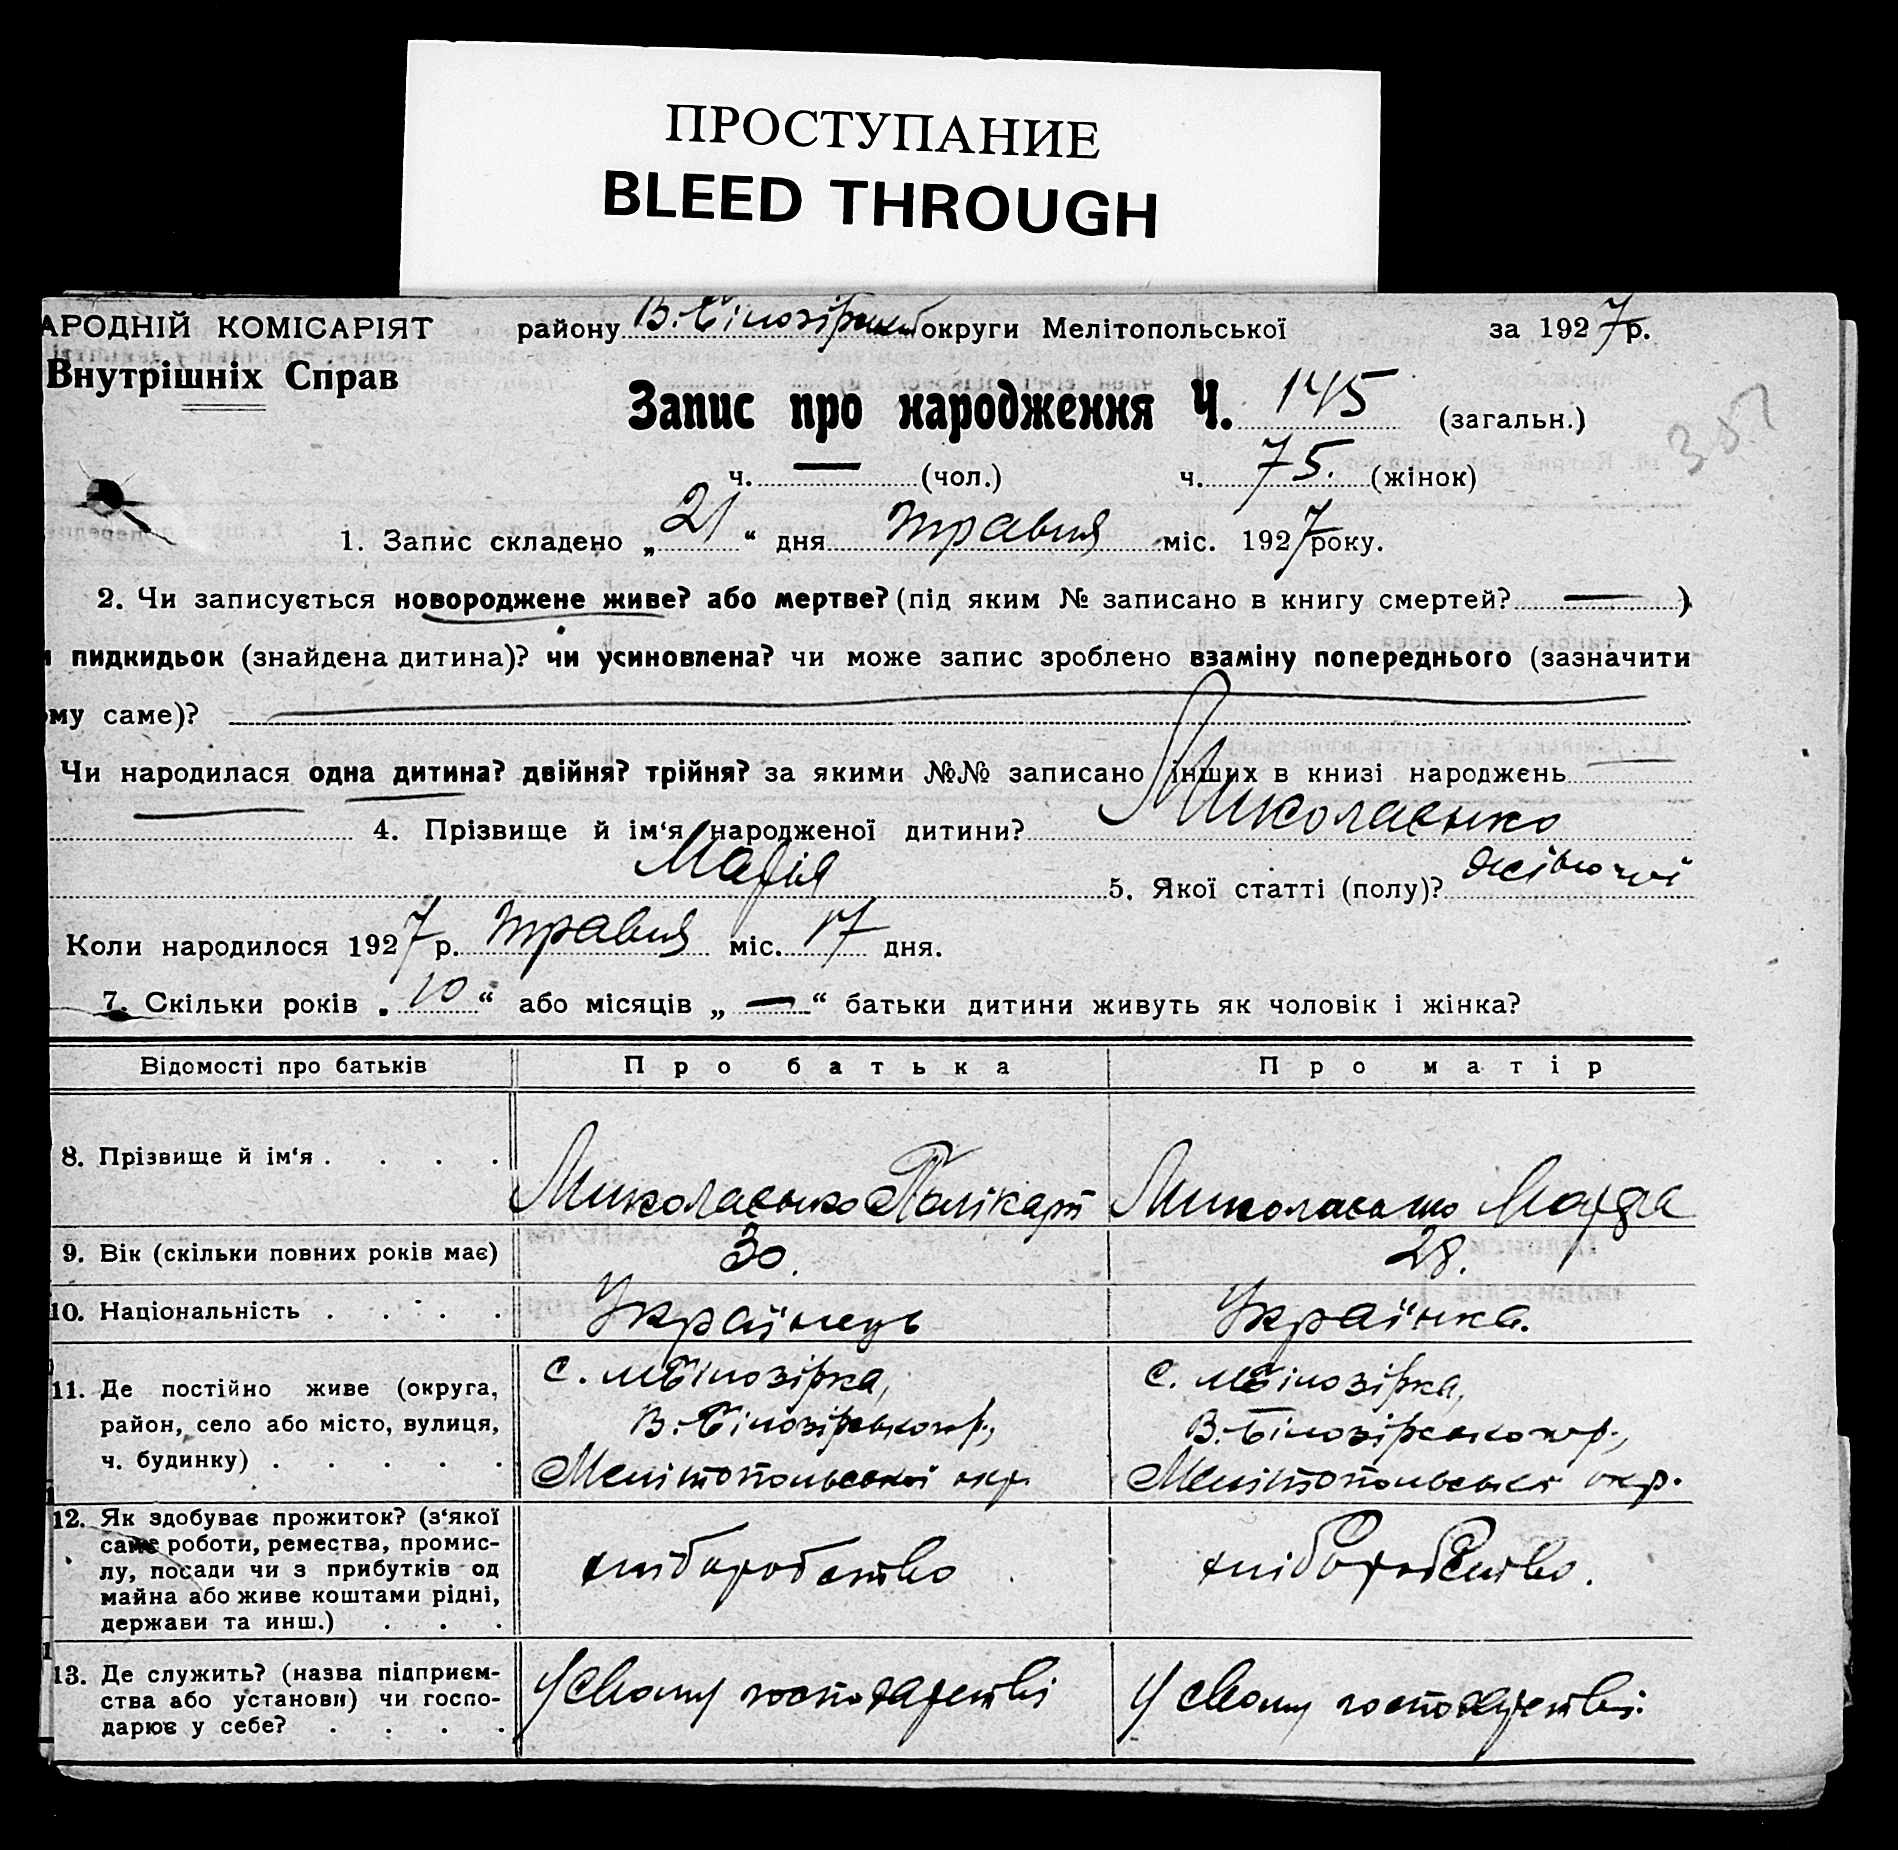 ПРОСТУПАНИЕ
BLEED THROUGH
АРОДНІЙ КОМІСАРІЯТ району В.-Білозірської округи Мелітопольської за 1927 р.
Внутрішніх Справ
Запис про народження Ч. 145 (загальн.)
ч. — (чол.) ч. 75. (жінок)
1. Запис складено „21“ дня травня міс. 1927 року.
2. Чи записується новороджене живе? або мертве? (під яким № записано в книгу смертей? — )
и пидкидьок (знайдена дитина)? чи усиновлена? чи може запис зроблено взаміну попереднього (зазначити
ому саме)?
Чи народилася одна дитина? двійня? трійня? за якими №№ записано інших в книзі народжень
4. Прізвище й ім‘я народженої дитини? Миколаєнко
Марія 5. Якої статті (полу)? жіночої
Коли народилося 1927 р. травня міс. 17 дня.
7. Скільки років „10“ або місяців „—“ батьки дитини живуть як чоловік і жінка?
Відомості про батьків Про батька Про матір
8. Прізвище й ім‘я . . . . Миколаєнко Полікарп Миколаєнко Марфа
9. Вік (скільки повних років має) 30. 28.
10. Національність . . . . Українець Українка.
11. Де постійно живе (округа, район, село або місто, вулиця, ч. будинку) . . . . .
с. М Білозірка, с. М Білозірка,
В.-Білозірського р., В.-Білозірського р.,
Мелітопольської окр. Мелітопольської окр.
12. Як здобуває прожиток? (з‘якої
саме роботи, ремества, промис-
лу, посади чи з прибутків од
майна або живе коштами рідні,
держави та инш.) . . .
хліборобство хліборобство.
13. Де служить? (назва підприєм-
ства або установи) чи госпо-
дарює у себе? . . . .
У свому господарстві У свому господарстві.